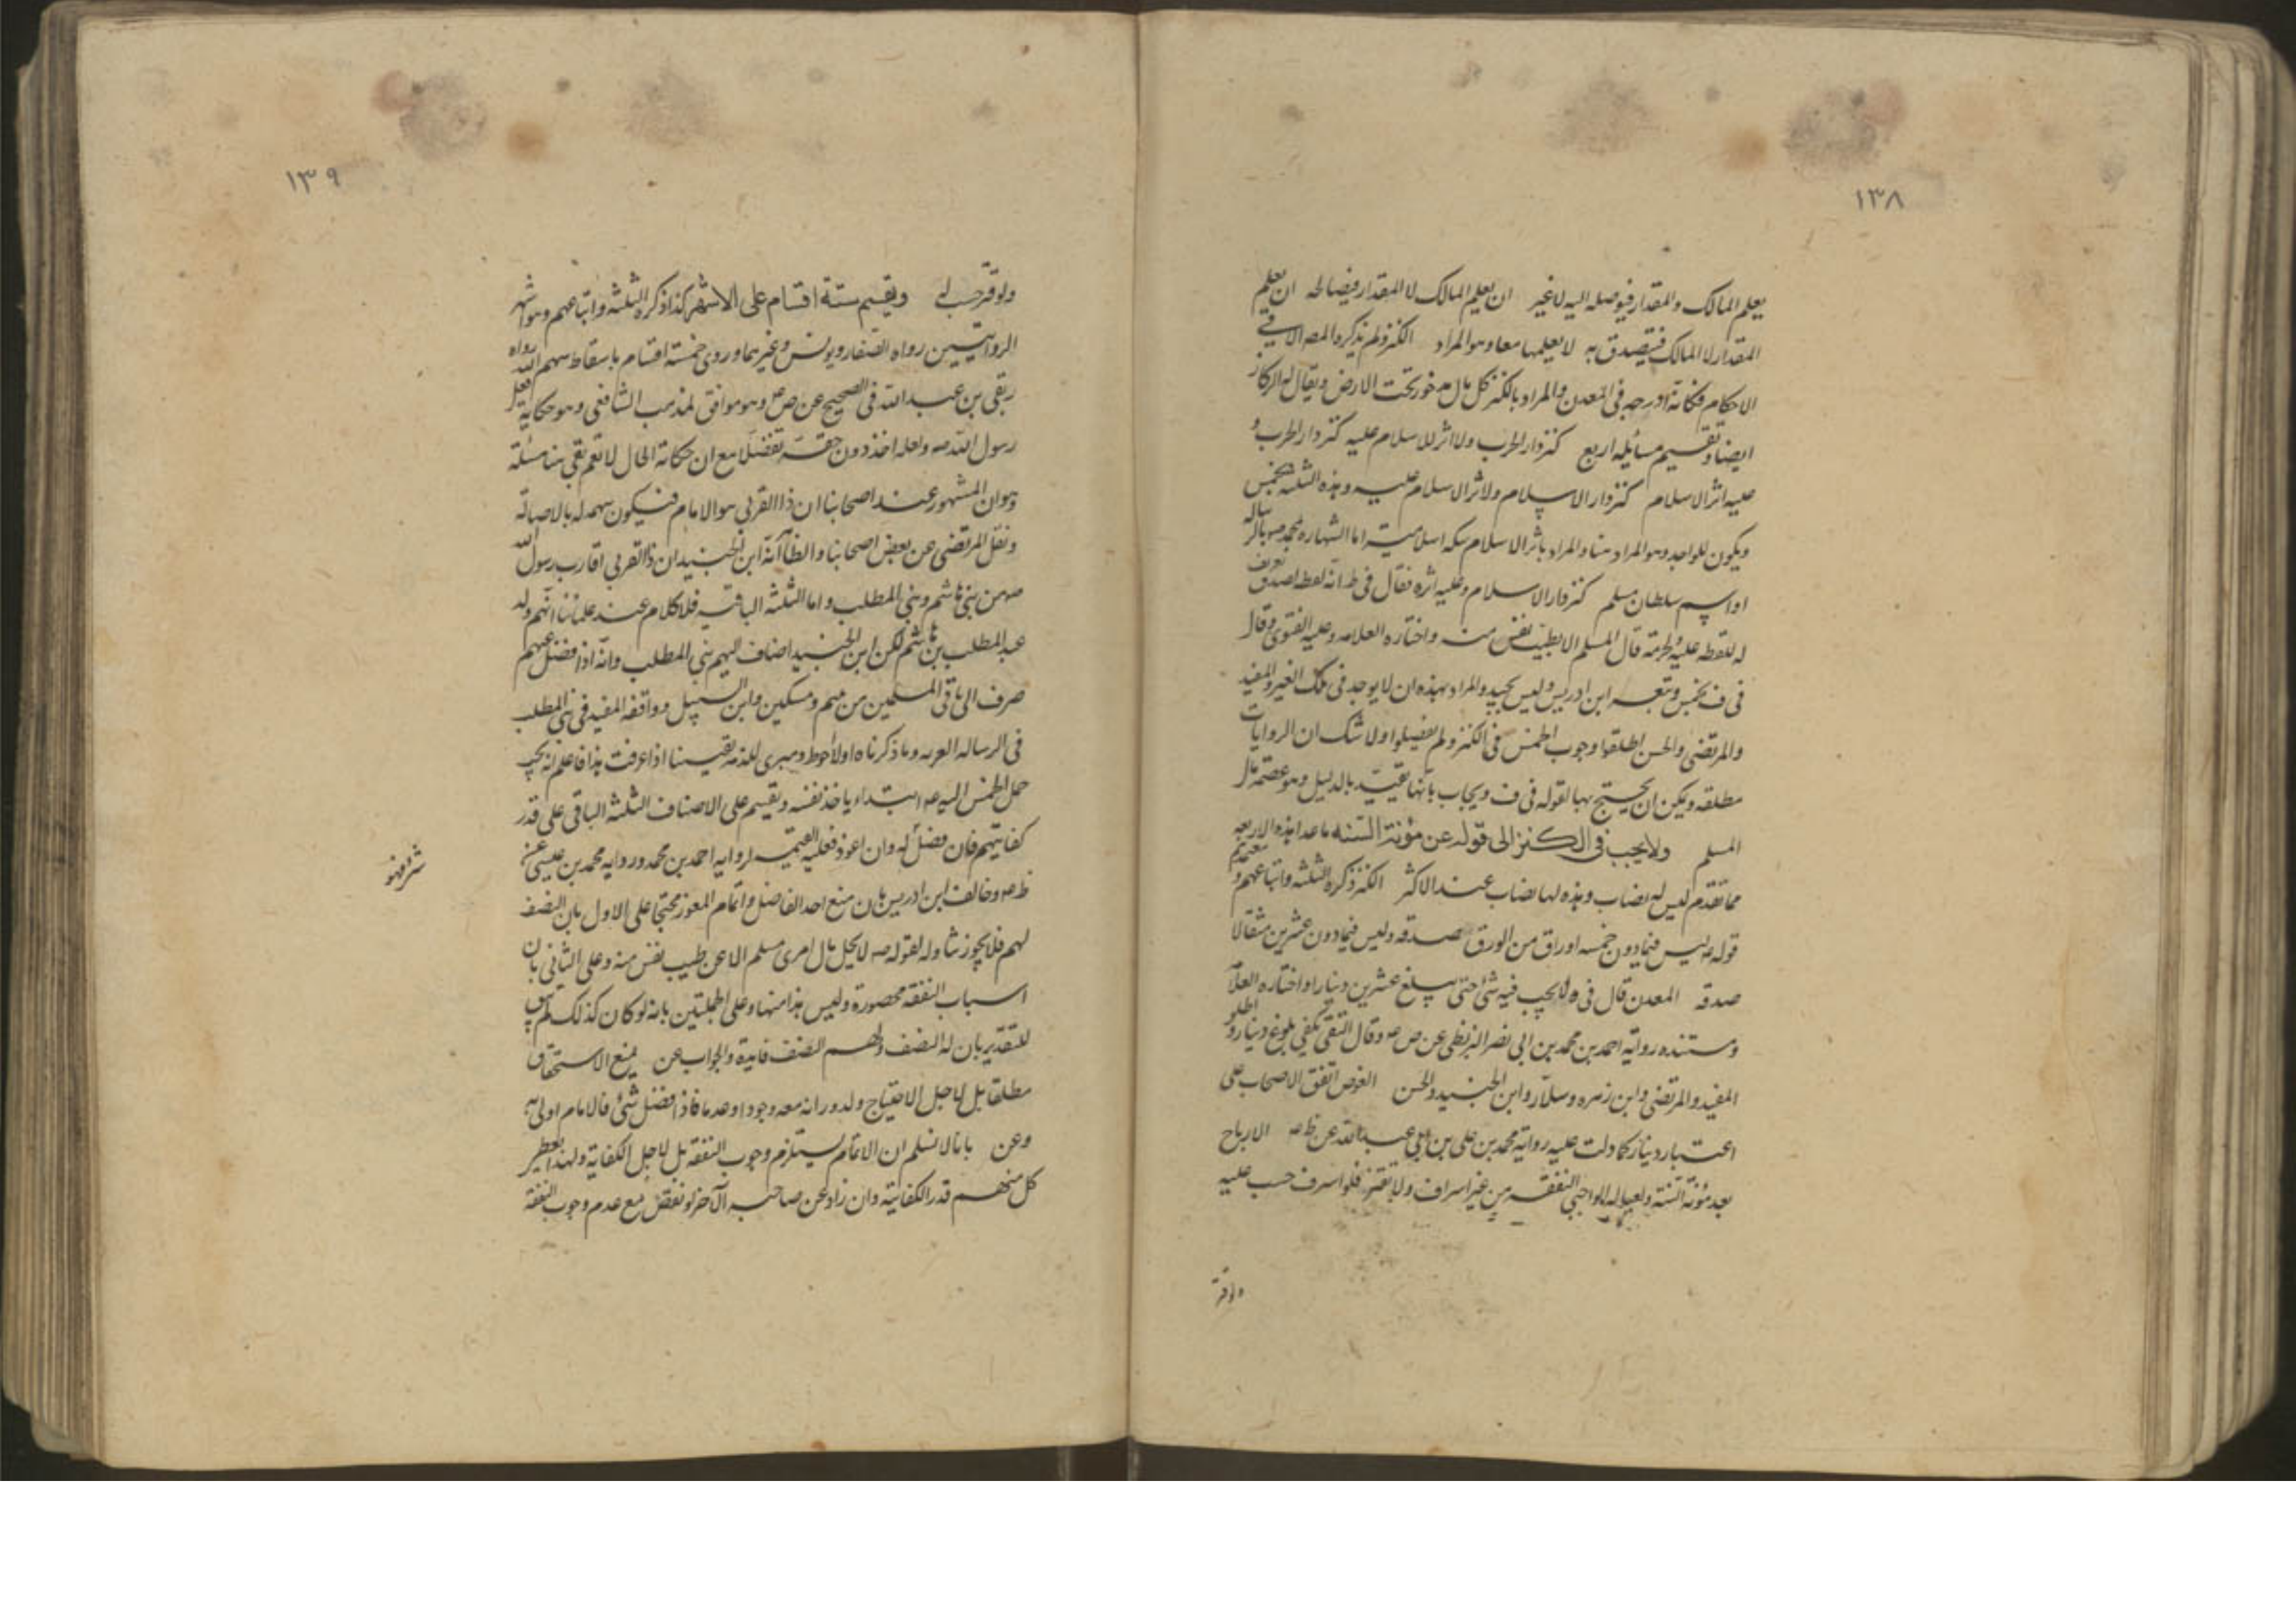 ١٣٨
يعلم المالك والمقدار فيوصله اليه لا غير ان يعلم المالك لا المقدار فيصالحه ان يعلم
المقدار لا المالك فيتصدق به لا يعلمها معا وهو المراد الكنز ولم يذكره المصر الا في
الاحكام فكانه ادرجه في المعدن والمراد بالكنز كل مال مدخور تحت الارض ويقال له الركاز
ايضا وتقسيم مسائله اربع كنز دار الحرب ولا اثر للاسلام عليه كنز دار الحرب و
عليه اثر الاسلام كنز دار الاسلام ولا اثر الاسلام عليه وهذه الثلثة يخمس
ويكون للواجد وهو المراد هنا والمراد باثر الاسلام سكه اسلامية اما الشهاده بمحمد بالرساله
او اسم سلطان مسلم كنز دار الاسلام وعليه اثره فقال في ط انه لقطه لصدق تعريف
له للقطه عليه ولحرمة مال المسلم الا بطيب نفس منه واختاره العلامه وعليه الفتوى وقال
في ف يخمس وتبعه ابن ادريس وليس بجيد والمراد بهذه ان لا يوجد في ملك الغير والمفيد
والمرتضى والحسن اطلقوا وجوب الخمس في الكنز ولم يفصلوا ولا شك ان الروايات
مطلقه ويمكن ان يحتج بها لقوله في ف ويجاب بانها مقيد بالدليل وهو عصمة مال
المسلم ولا يجب في الكنز الى قوله عن مؤنة السنه ما عدا هذه الاربعه
مما تقدم ليس له نصاب وهذه لها نصاب عند الاكثر الكنز ذكره الثلثة واتباعهم و
قوله ع ليس فيما دون خمسه اوراق من الورق صدقه وليس فيما دون عشرين مثقالا
صدقه المعدن قال في ه لا يجب فيه شئ حتى يبلغ عشرين دينارا واختاره العلا
ومستنده رواية احمد بن محمد بن ابي نصر البزنطي عن ص ع وقال التقي يكفي بلوغ دينار و اطلق
المفيد والمرتضى وابن زهره وسلار وابن الجنيد والحسن الغوص اتفق الاصحاب على
اعتبار دينار كما دلت عليه رواية محمد بن علي بن ابي عبد الله عن ظ ع الارباح
بعد مؤنة السنة ولعياله الواجبي النفقه من غير اسراف ولا تقتير فلو اسرف حسب عليه
ولو قتر
١٣٩
ولو قتر حسب له ويقسم ستة اقسام على الاشهر كذا ذكره الثلثة واتباعهم وهو اشهر
الروايتين رواه الصفار ويونس وغيرهما وروى خمسة اقسام باسقاط سهم الله رواه
ربعي بن عبد الله في الصحيح عن ص ع وهو موافق لمذهب الشافعي وهو حكاية فعل
رسول الله ص ولعله اخذ دون حقه تفضلا مع ان حكاية الحال لا تعم بقي هنا مسئلة
وهو ان المشهور عند اصحابنا ان ذا القربى هو الامام فيكون سهمه له بالاصالة
ونقل المرتضى عن بعض اصحابنا والظا انه ابن الجنيد ان ذا القربى اقارب رسول الله
ص من بني هاشم وبني المطلب واما الثلثة الباقيه فلا كلام عند علمائنا انهم ولد
عبد المطلب بن هاشم لكن ابن الجنيد اضاف اليهم بني المطلب وانه اذا فضل عنهم
صرف الى باقي المسلمين من يتيم ومسكين وابن السبيل ووافقه المفيد في بني المطلب
في الرساله العزيه وما ذكرناه اولا احوط ومبرى للذمه يقينا اذا عرفت هذا فاعلم انه يجب
حمل الخمس اليه ع ابتداء ياخذ نفسه ويقسم على الاصناف الثلثة الباقي على قدر
كفايتهم فان فضل له وان اعوز فعليه التتمه لروايه احمد بن محمد وروايه محمد بن عيسى عن
ظ ع وخالف ابن ادريس بان منع اخذ الفاضل واتمام المعوز محتجا على الاول بان النصف
لهم فلا يجوز تناوله لقوله ص لا يحل مال امرئ مسلم الا عن طيب نفس منه وعلى الثاني بان
اسباب النفقه محصورة وليس هذا منها وعلى الجملتين بانه لو كان كذلك لم يجب
للتقدير بان له النصف ولهم النصف فايدة والجواب عن بمنع الاستحقاق
مطلقا بل لاجل الاحتياج ولدورانه معه وجودا وعدما فاذا فضل شئ فالامام اولى به
وعن بانا لا نسلم ان الاتمام يستلزم وجوب النفقه بل لاجل الكفاية ولهذا يعطى
كل منهم قدر الكفاية وان زاد عن صاحبه الآخر او نقص مع عدم وجوب النفقة